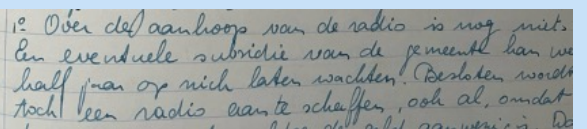 1º Over de aankoop van de radio is nog niets
Een eventuele subsidie van de gemeente kan we
half jaar op zich laten wachten. Besloten wordt
toch een radio aan te schaffen, ook al, omdat